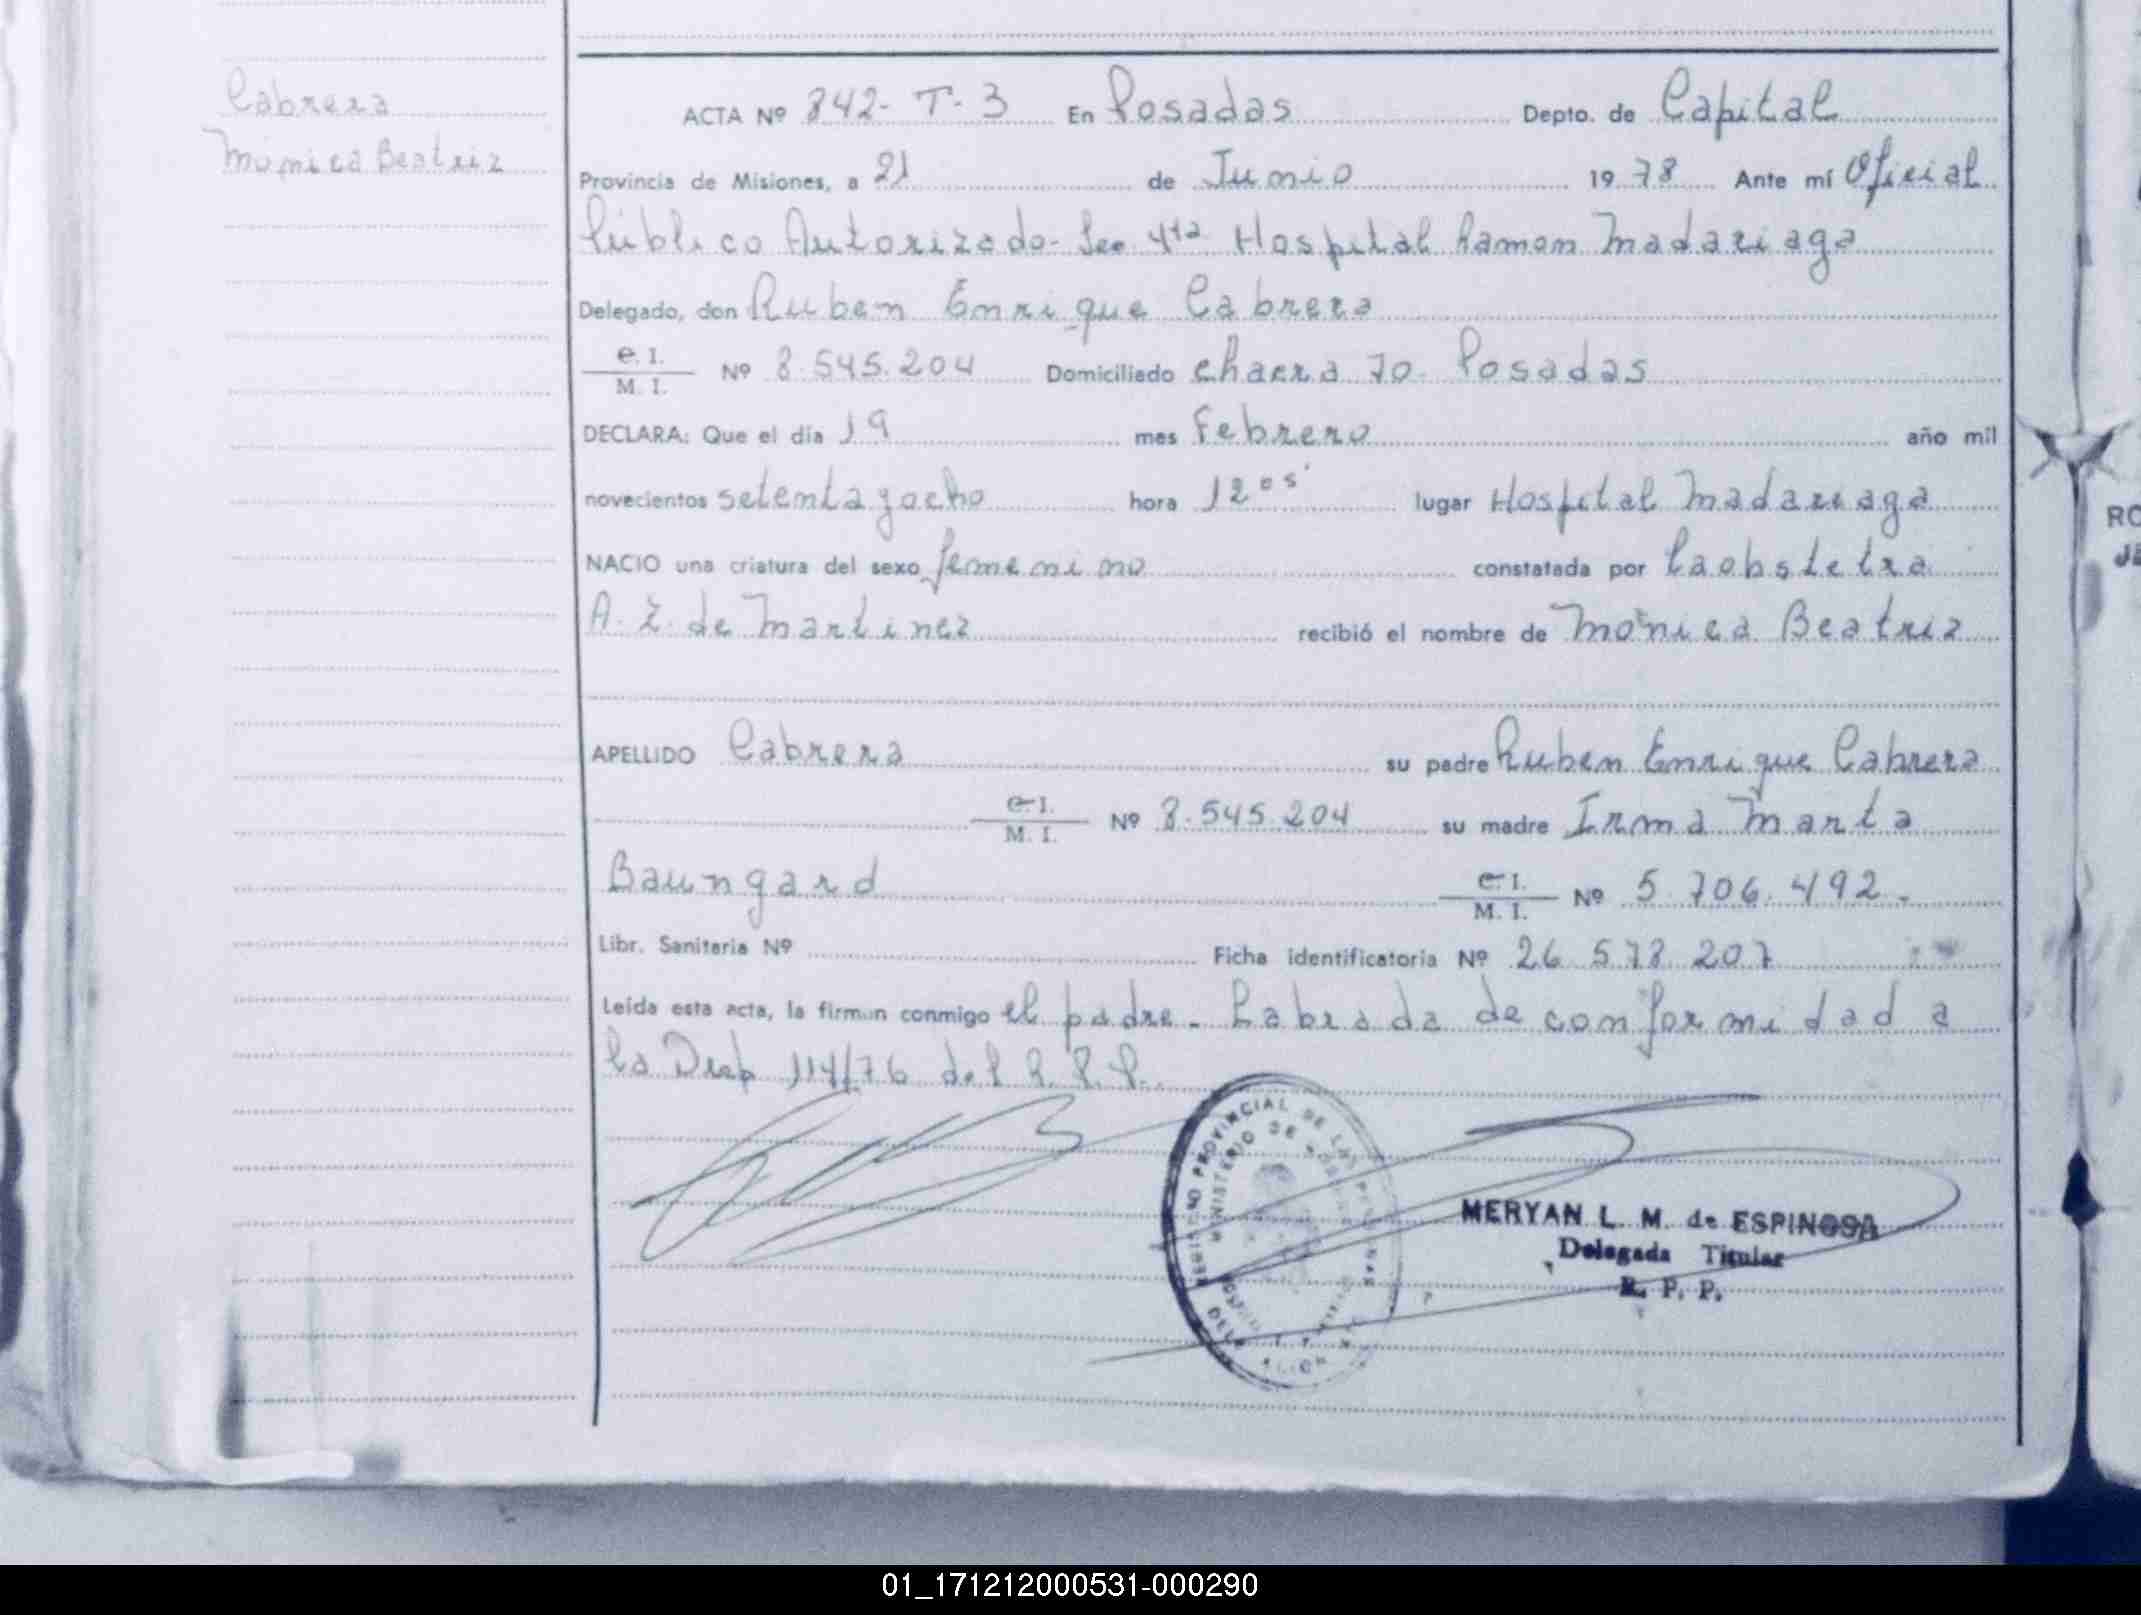 Cabrera
Mónica Beatriz
ACTA Nº 842- T- 3 En Posadas Depto. de Capital
Provincia de Misiones, a 21 de Junio 1978 Ante mí Oficial
Público Autorizado- Sec 4ta Hospital Ramon Madariaga
Delegado, don Ruben Enrique Cabrera
e. I.
M. I. Nº 8.545.204 Domiciliado chacra 70. Posadas
DECLARA: Que el día 19 mes Febrero año mil
novecientos setenta y ocho hora 12 05' lugar Hospital Madariaga
NACIO una criatura del sexo femenino constatada por la obstetra
A. Z. de Martinez recibió el nombre de Mónica Beatriz
APELLIDO Cabrera su padre Ruben Enrique Cabrera
e. I.
M. I. Nº 8.545.204 su madre Irma Marta
Baungard e. I.
M. I. Nº 5.706.492.-
Libr. Sanitaria Nº Ficha identificatoria Nº 26 578 207
Leída esta acta, la firman conmigo el padre - Labrada de conformidad a
la Disp 114/76 del R. P. P.
REGISTRO PROVINCIAL DE LAS PERSONAS
MINISTERIO DE
MERYAN L. M. de ESPINOSA
Delegada Titular
R. P. P.
RO
01_171212000531-000290